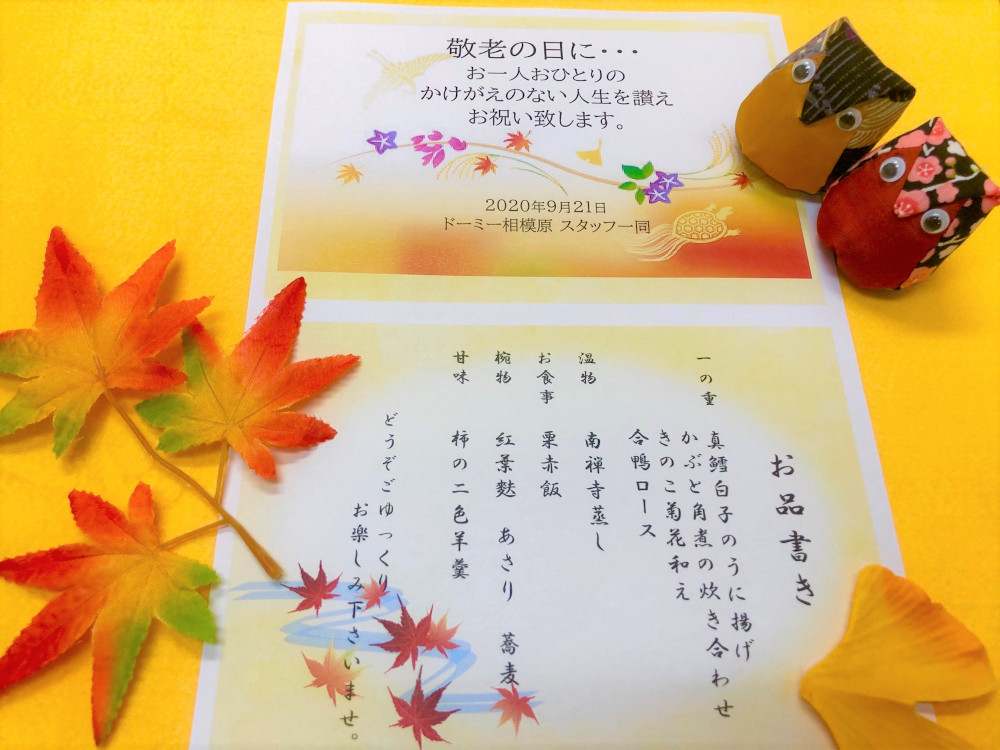 敬老の日に・・・
お一人おひとりの
かけがえのない人生を讃え
お祝い致します。
2020年9月21日
ドーミー相模原 スタッフ一同
お品書き
一の重
真鱈白子のうに揚げ
かぶと角煮の炊き合わせ
きのこ菊花和え
合鴨ロース
温物 南禅寺蒸し
お食事 栗赤飯
椀物 紅葉麩 あさり 蕎麦
甘味 柿の二色羊羹
どうぞごゆっくり
お楽しみ下さいませ。